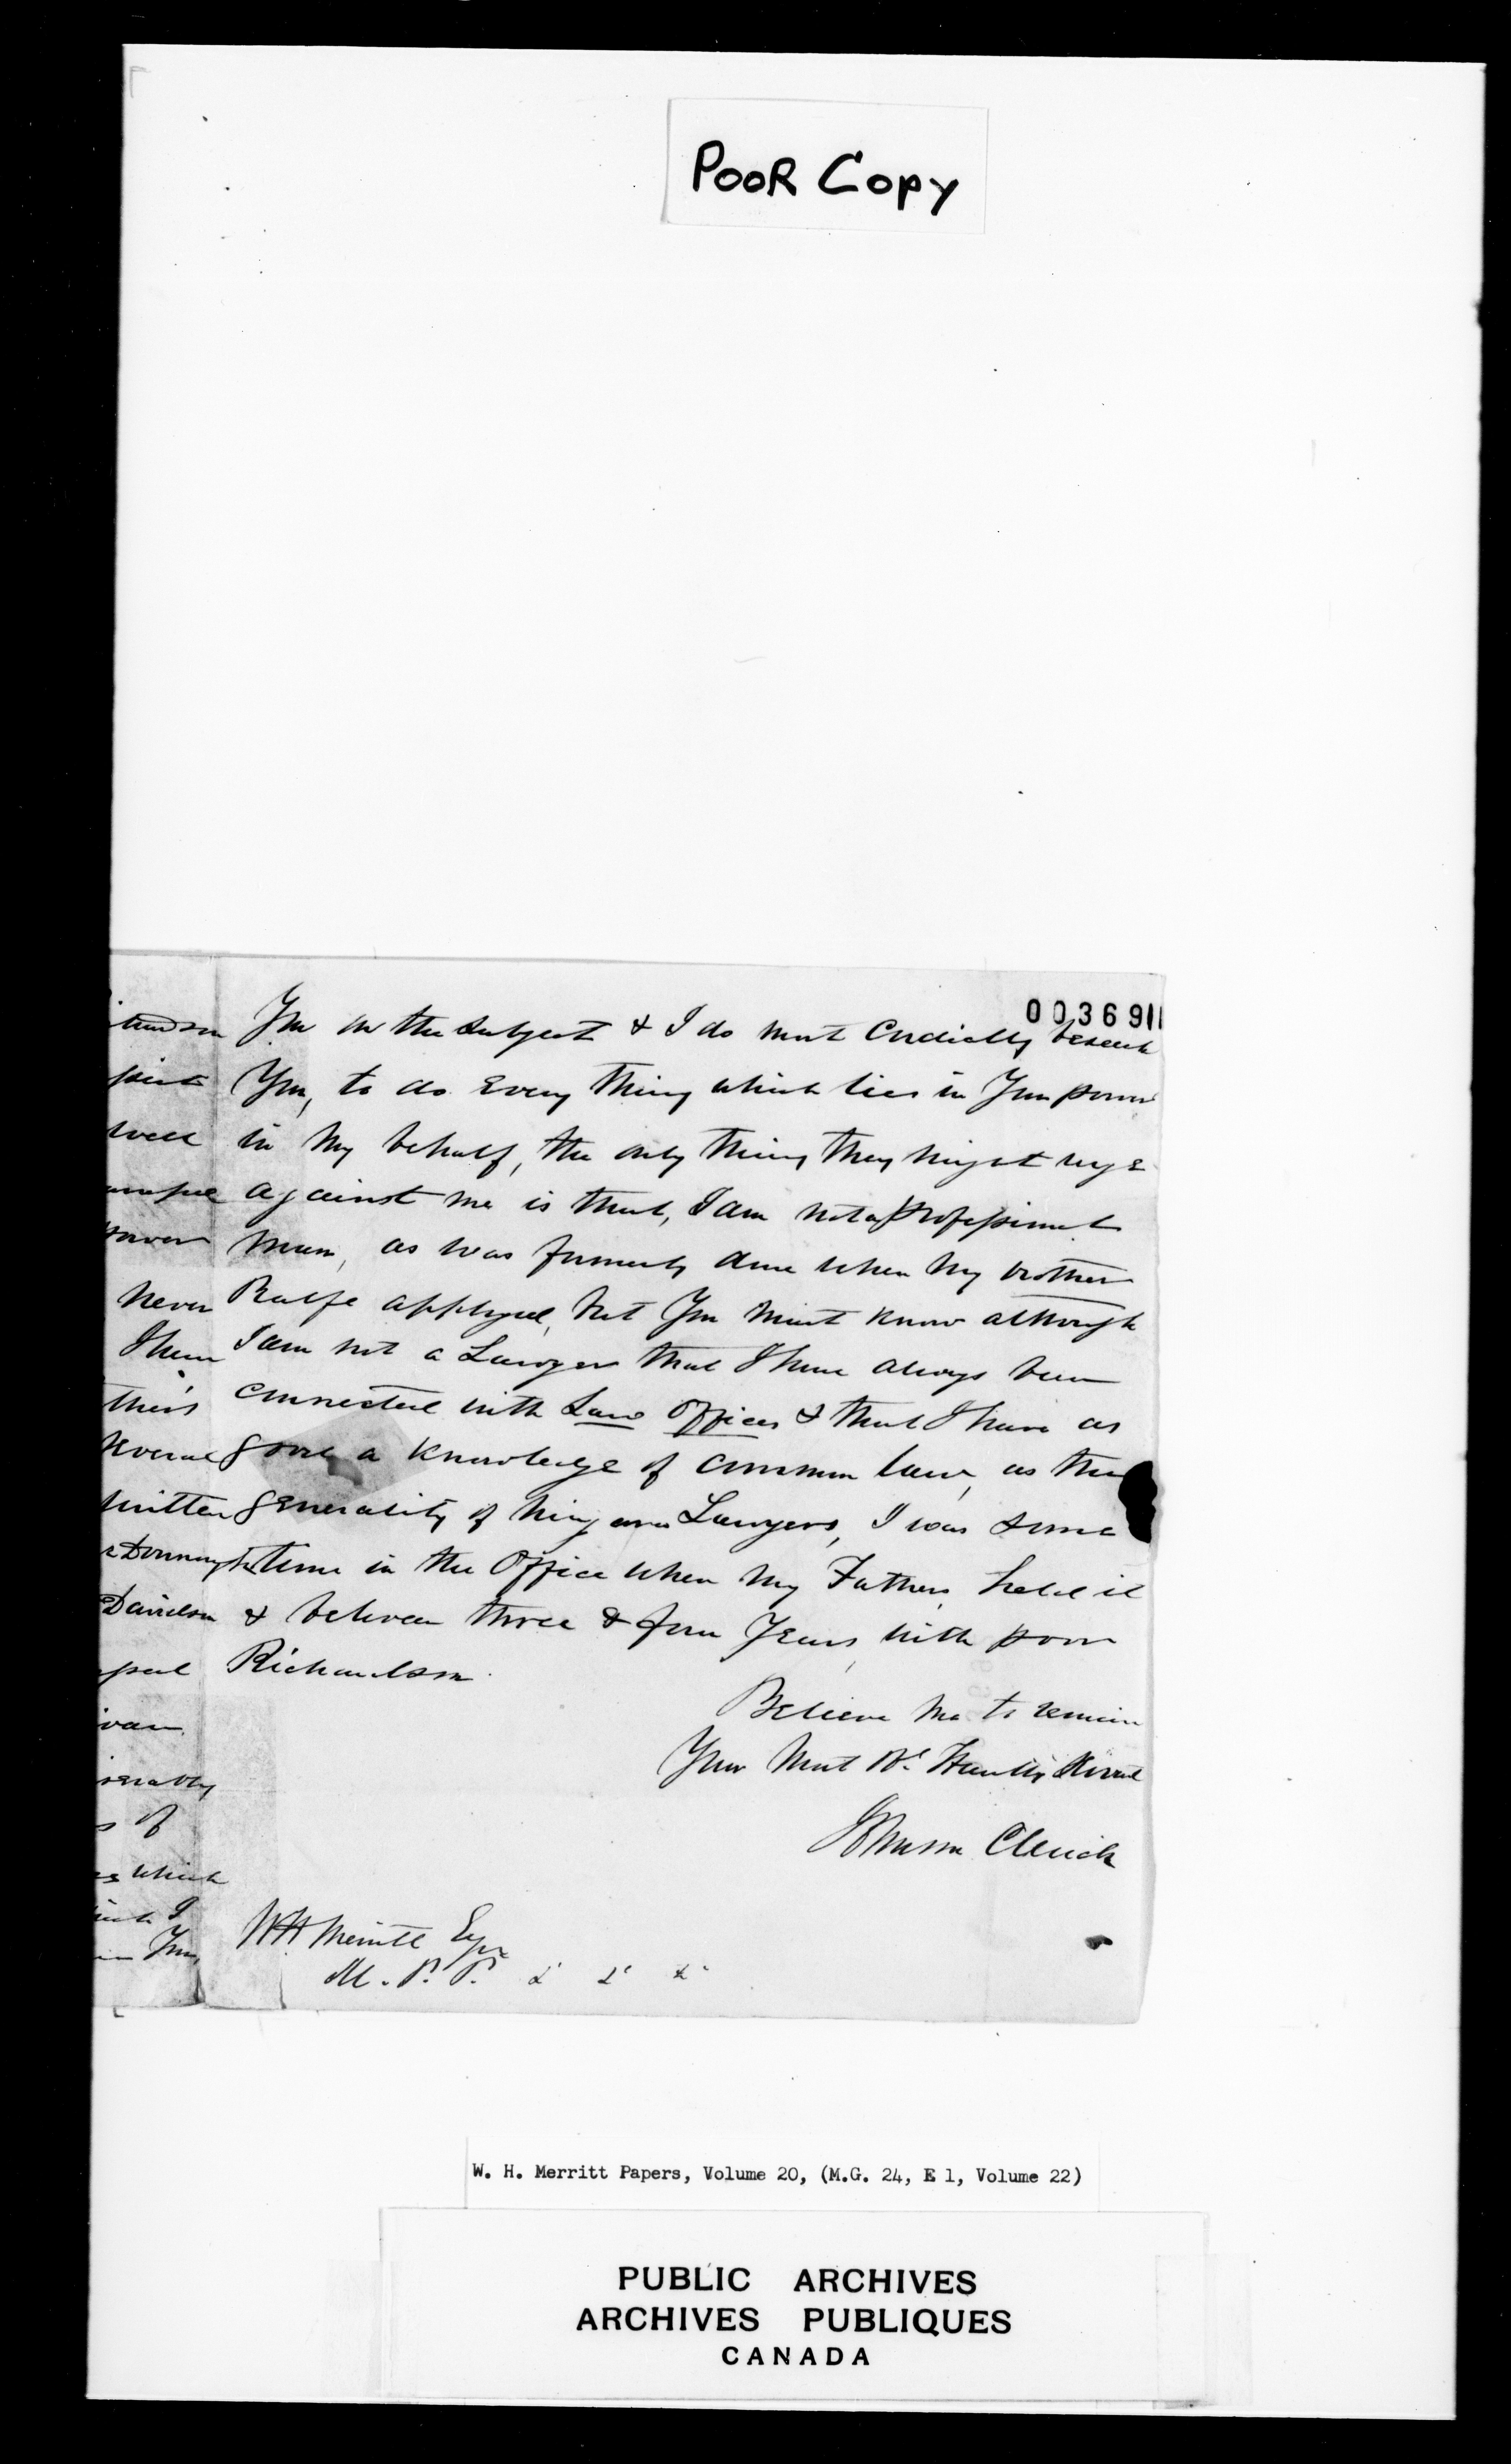 POOR COPY
003691
You on the subject & I do most Cordially beseech
You, to do Every thing which lies in Your power
in My behalf, the only thing they might urge
against me is that, I am not a professional
Man, as was formerly done when My brother
Ralfe applyed, but You Must know although
I am not a Lawyer that I have always been
Connected with Law Offices & that I have as
good a knowledge of Common law, as the
generality of Niagara Lawyers, I was some
time in the Office when My Father, held it
& between three & four Years, with poor
Richardson.
Believe Me to remain
Your Most Ob. Humble Servt
Johnson Clench
WH Merritt Esqr
M. P. P. &c &c &c
never
I have
this
several
written
Davidson
of
which
I
You,
W. H. Merritt Papers, Volume 20, (M.G. 24, E 1, Volume 22)
PUBLIC ARCHIVES
ARCHIVES PUBLIQUES
CANADA